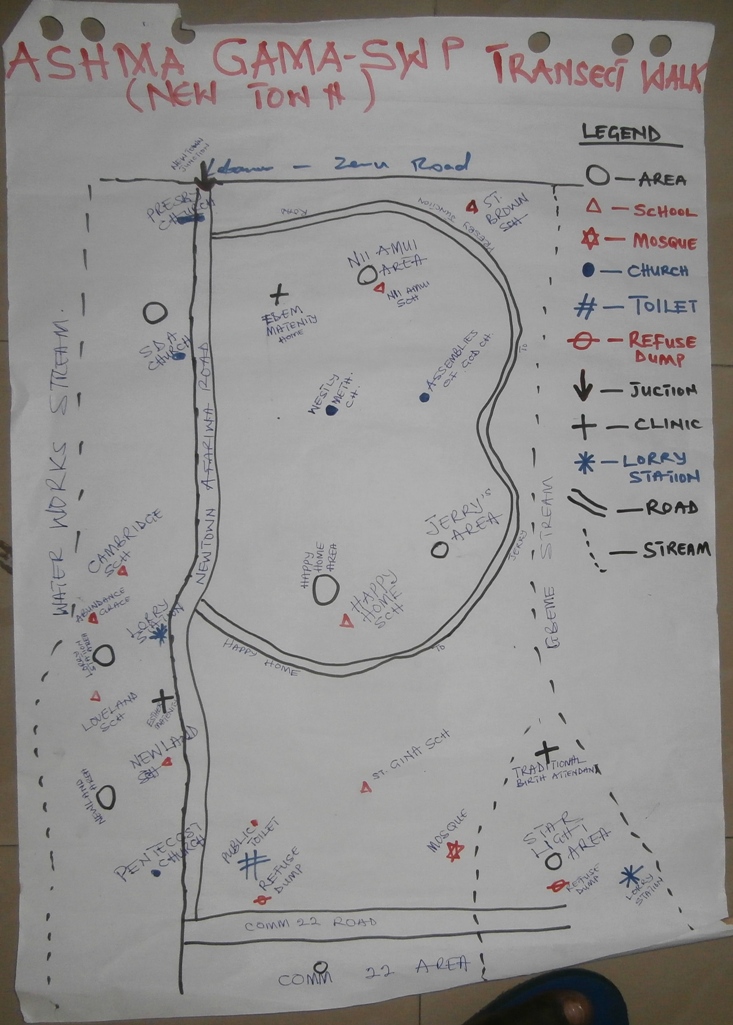 ASHMA GAMA-SWP TRANSECT WALK
(NEW TOWN)
LEGEND
AREA
SCHOOL
MOSQUE
CHURCH
TOILET
REFUSE
DUMP
JUCTION
CLINIC
LORRY
STATION
ROAD
STREAM
NEWTOWN
JUNCTION
Zenu Road
PRESBY
CHURCH
ROAD
JUNCTION
PRESBY
TO
JERRY
ST.
BROWN
SCH
NII AMUI
AREA
NII AMUI
SCH
EDEM
MATENITY
Home
SDA
CHURCH
WESTLY
METH.
CH.
ASSEMBLIES
OF GOD CH.
NEWTOWN AFARIWA ROAD
WATER WORKS STREAM.
GBEME STREAM
CAMBRIDGE
SCH
ABUNDANCE
GRACE
LORRY
STATION
LORRY
STATION
AREA
LOVELAND
SCH
NEWLAND
SCH
NEWLAND
AREA
PENTECOST
CHURCH
HAPPY
HOME
AREA
HAPPY
HOME
SCH
JERRY'S
AREA
HAPPY HOME
TO
ST. GINA SCH
TRADITIONAL
BIRTH ATTENDANT
PUBLIC
TOILET
REFUSE
DUMP
MOSQUE
STAR
LIGHT
AREA
REFUSE
DUMP
LORRY
STATION
COMM 22 ROAD
COMM 22 AREA